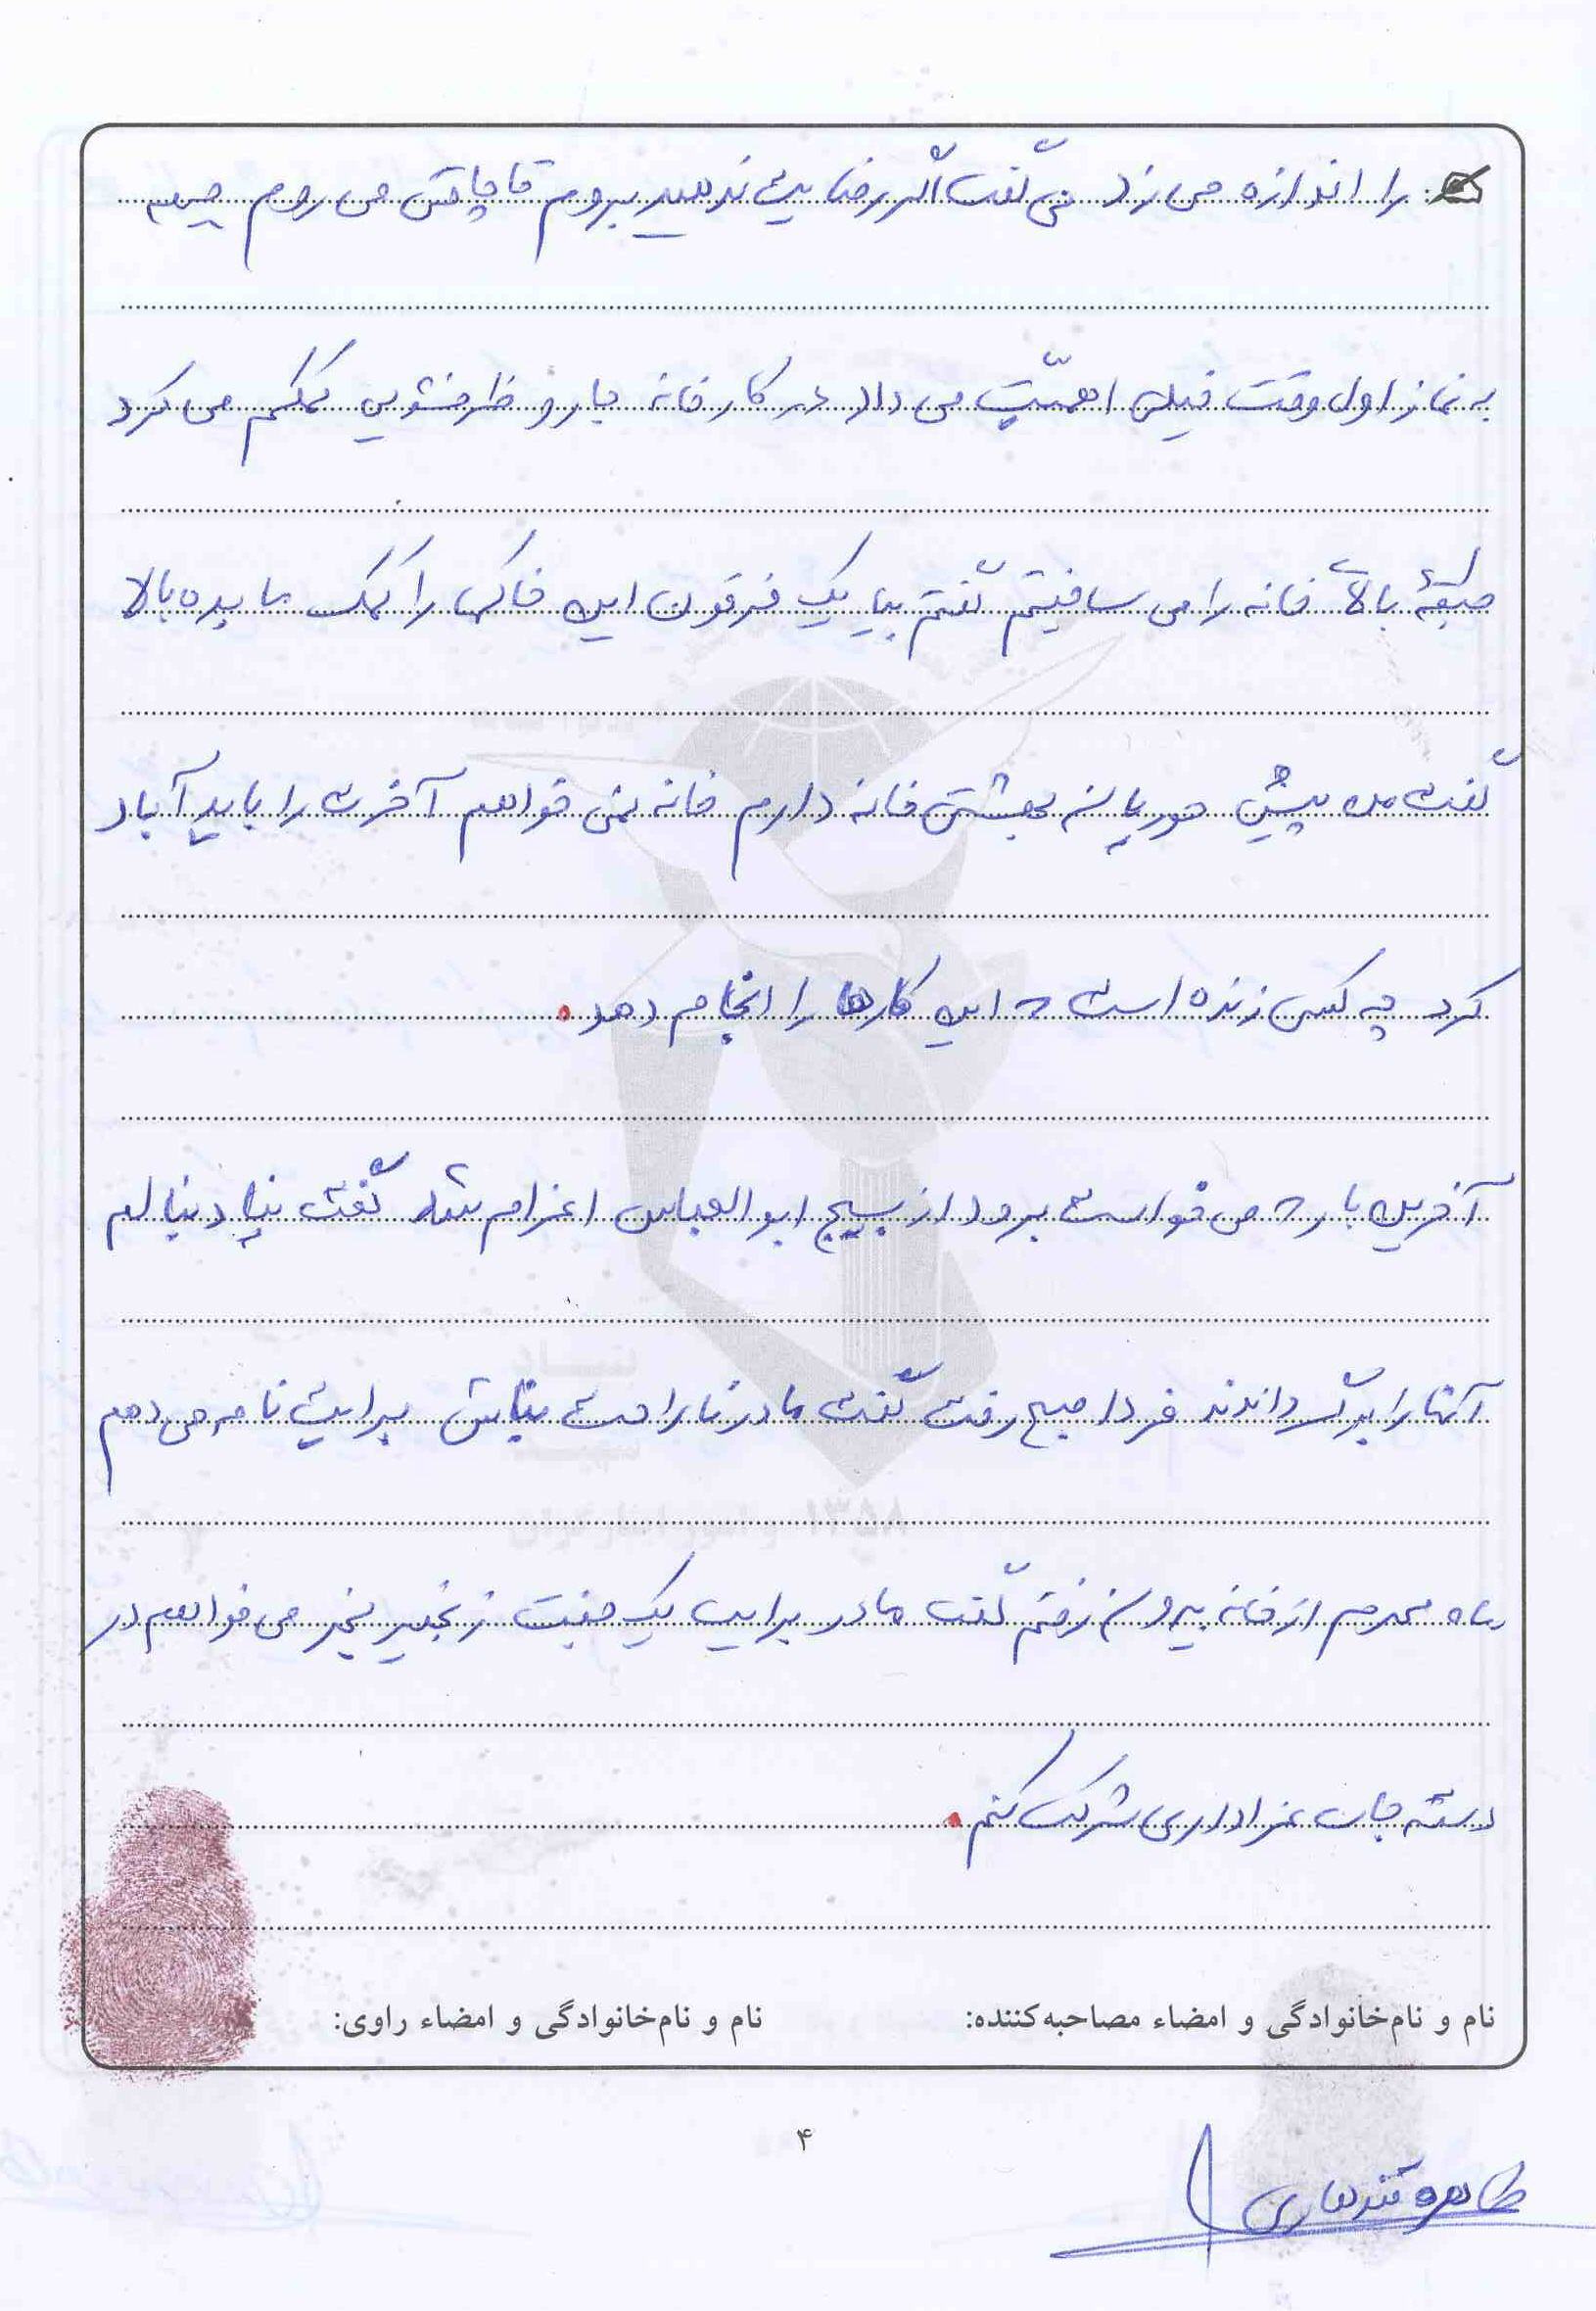 را اندازه می زد می گفت اگر رضایت ندهید بروم قاچاقی می روم جبهه
به نماز اول وقت خیلی اهمیّت می داد در کار خانه جارو ظرفشویی کمکم می کرد
طبقهٔ بالای خانه را می ساختیم گفتم بیا یک فرقون این خاکها را کمک ما بده بالا
گفت من پیش حوریان بهشتی خانه دارم خانه نمی خواهم آخرت را باید آباد
کرد چه کسی زنده است که این کارها را انجام دهد.
آخرین بار که می خواست برود از بسیج ابوالعباس اعزام شد گفت بیا دنبالم
آنها را برگرداندند فردا صبح رفت گفت مادر ناراحت نباش برایت نامه می دهم
ماه محرم از خانه بیرون رفتم گفت مادر برایم یک جفت زنجیر بخر می خواهم در
دسته جات عزاداری شرکت کنم.
نام و نام‌خانوادگی و امضاء مصاحبه‌کننده: نام و نام‌خانوادگی و امضاء راوی:
۴
طاهره قندهاری
۱۳۵۸